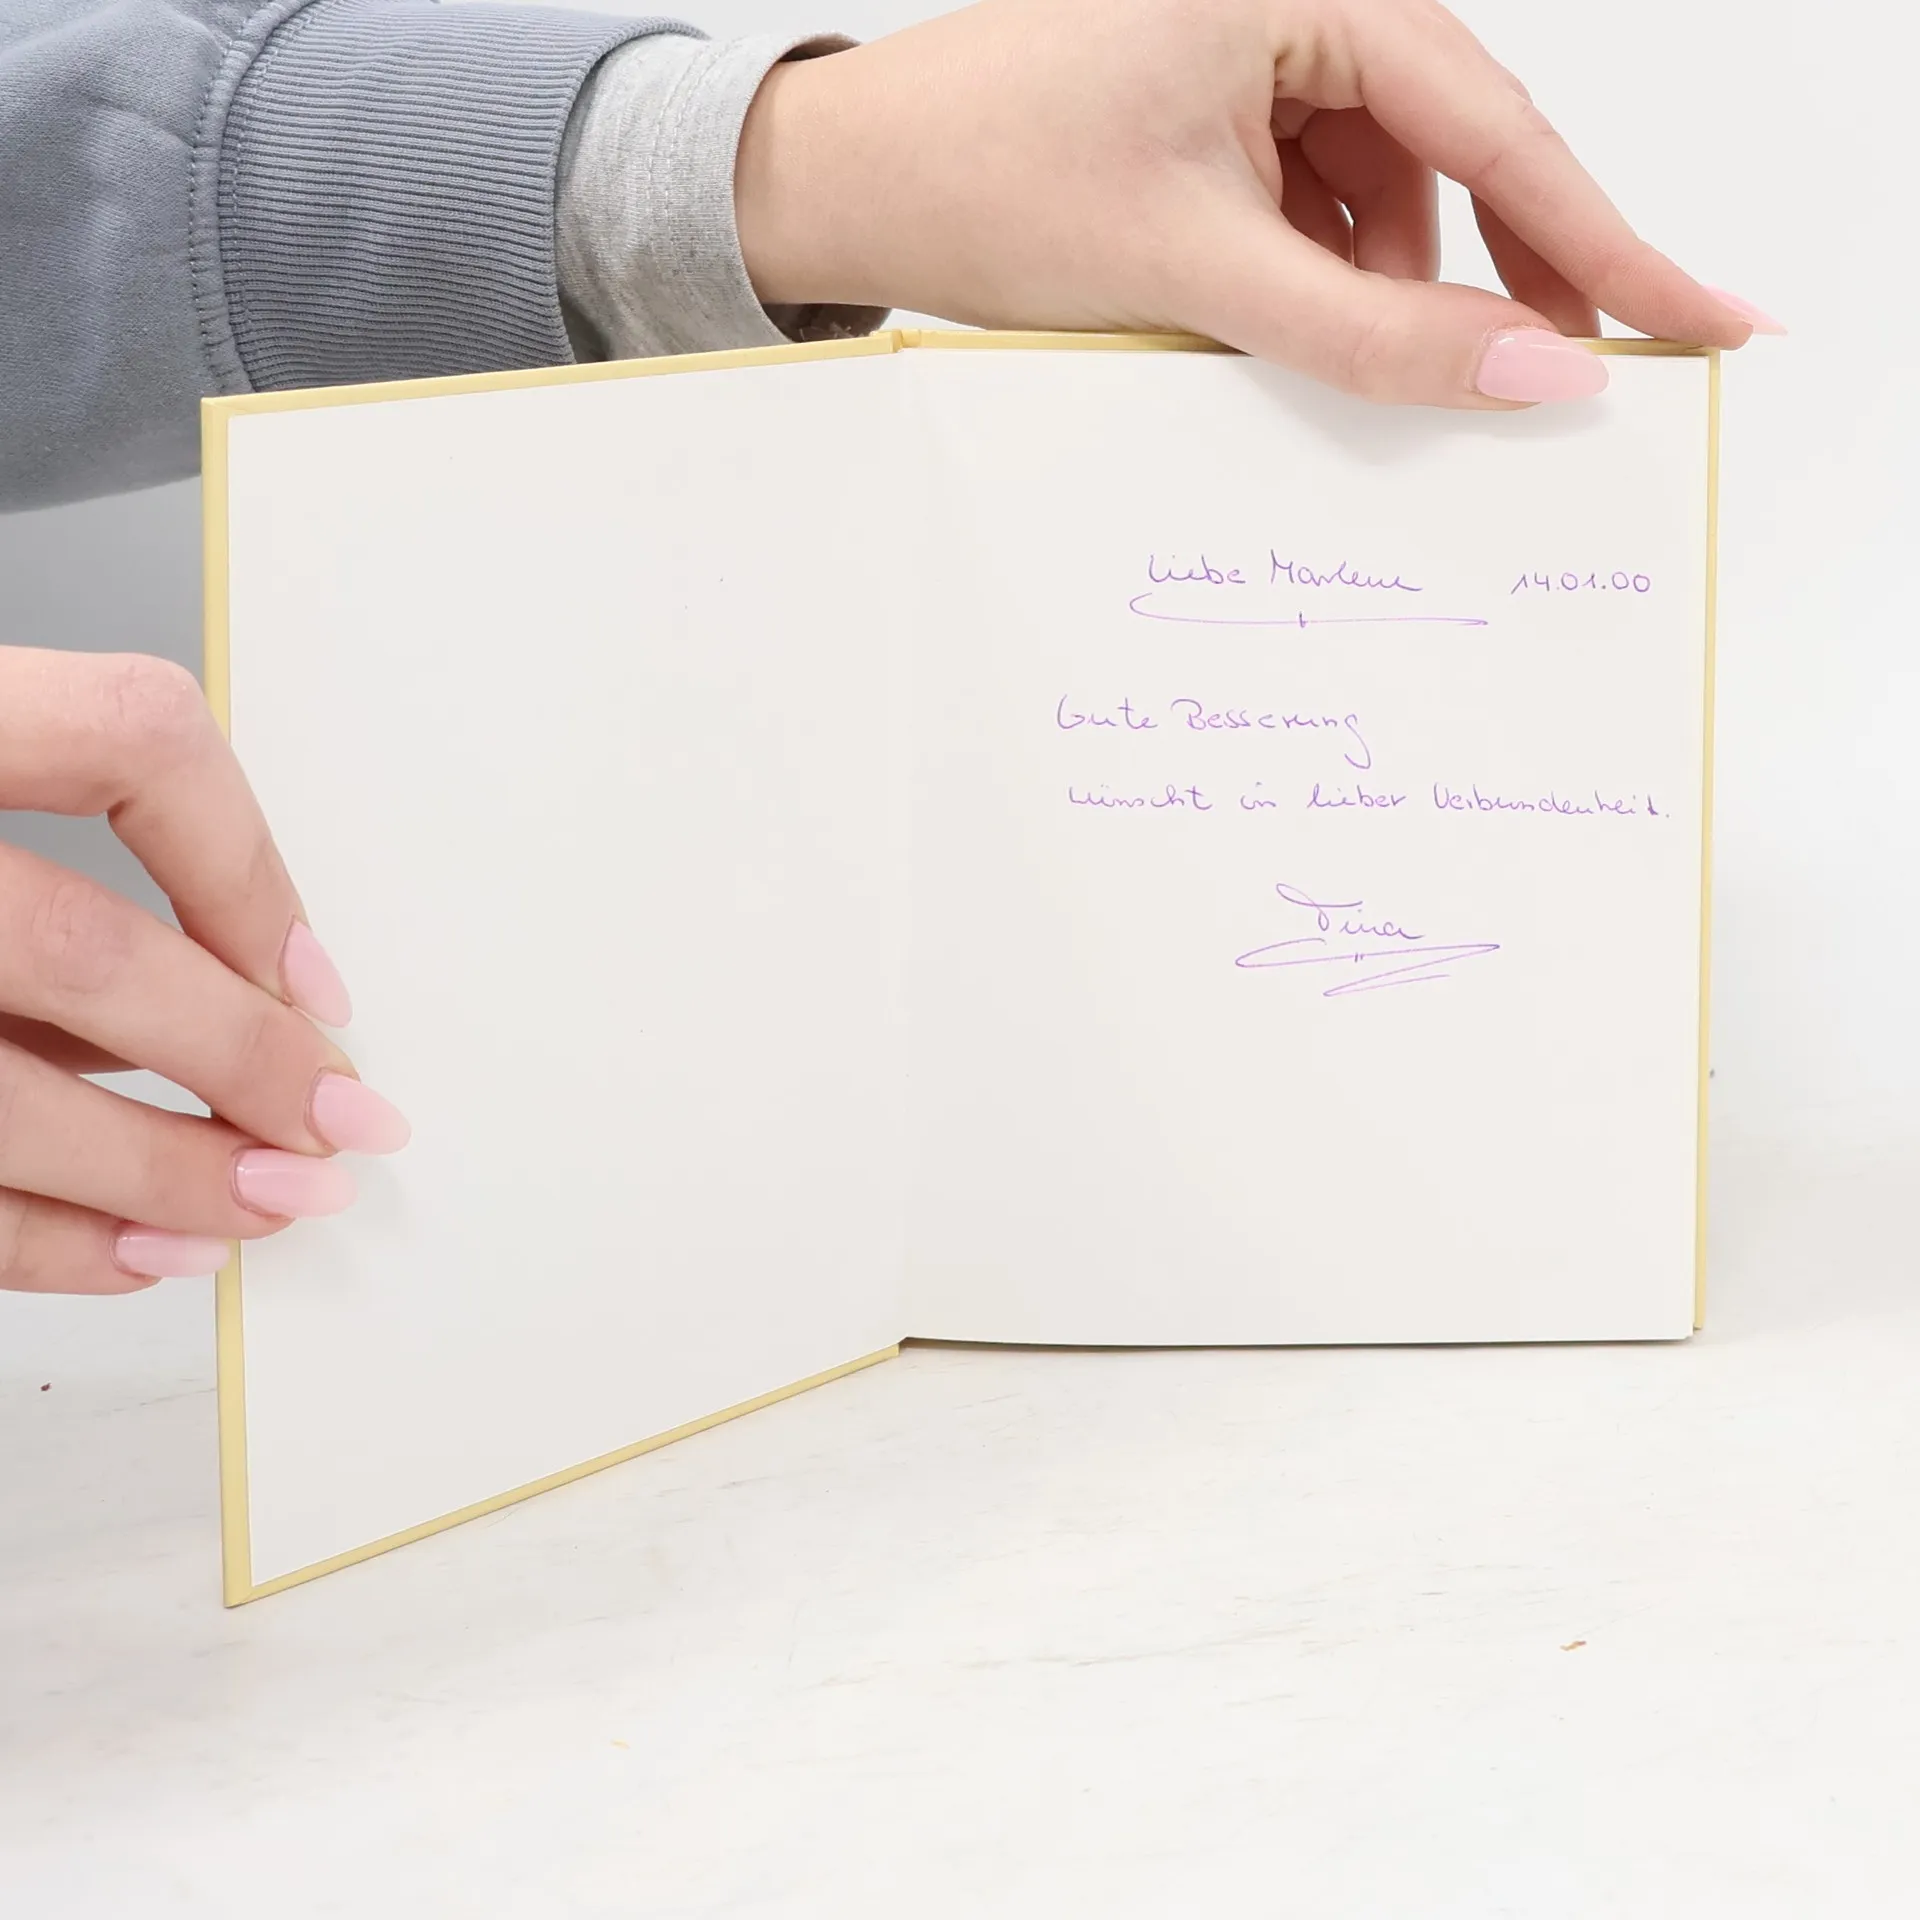 Liebe Marlene 14.01.00
Gute Besserung
wünscht in lieber Verbundenheit.
Tina